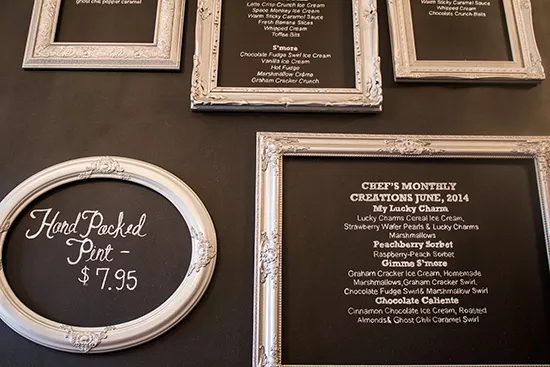 ghost chili pepper caramel
Latte Crisp Crunch Ice Cream
Space Monkey Ice Cream
Warm Sticky Caramel Sauce
Fresh Banana Slices
Whipped Cream
Toffee Bits
S'more
Chocolate Fudge Swirl Ice Cream
Vanilla Ice Cream
Hot Fudge
Marshmallow Crème
Graham Cracker Crunch
Warm Sticky Caramel Sauce
Whipped Cream
Chocolate Crunch Balls
Hand Packed
Pint -
$ 7.95
CHEF'S MONTHLY
CREATIONS JUNE, 2014
My Lucky Charm
Lucky Charms Cereal Ice Cream,
Strawberry Wafer Pearls & Lucky Charms
Marshmallows
Peachberry Sorbet
Raspberry-Peach Sorbet
Gimme S'more
Graham Cracker Ice Cream, Homemade
Marshmallows, Graham Cracker Swirl,
Chocolate Fudge Swirl & Marshmallow Swirl
Chocolate Caliente
Cinnamon Chocolate Ice Cream, Roasted
Almonds & Ghost Chili Caramel Swirl